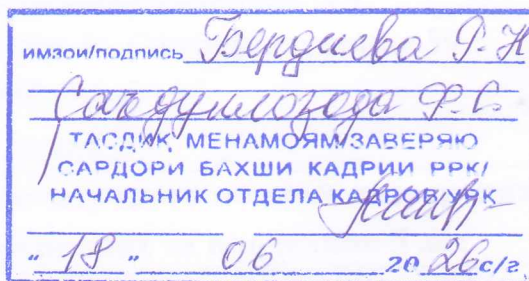 имзои/подпись Бердиева Р. Н
Саъдуллозода Ф. С.
ТАСДИҚ МЕНАМОЯМ/ЗАВЕРЯЮ
САРДОРИ БАХШИ КАДРИИ РРК/
НАЧАЛЬНИК ОТДЕЛА КАДРОВ УРК
" 18 " 06 20 26 с/г.